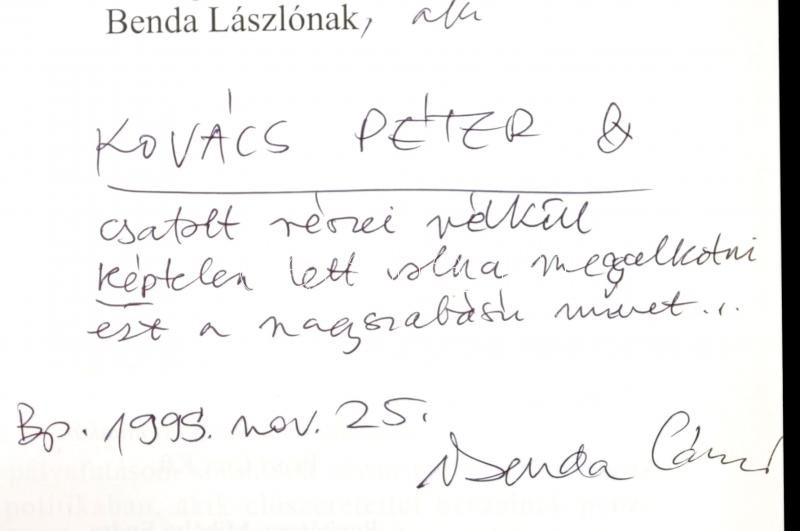 Benda Lászlónak, aki
KOVÁCS PÉTER &
csatolt részei nélkül
képtelen lett volna megalkotni
ezt a nagyszabású művet...
Bp. 1995. nov. 25.
Benda László